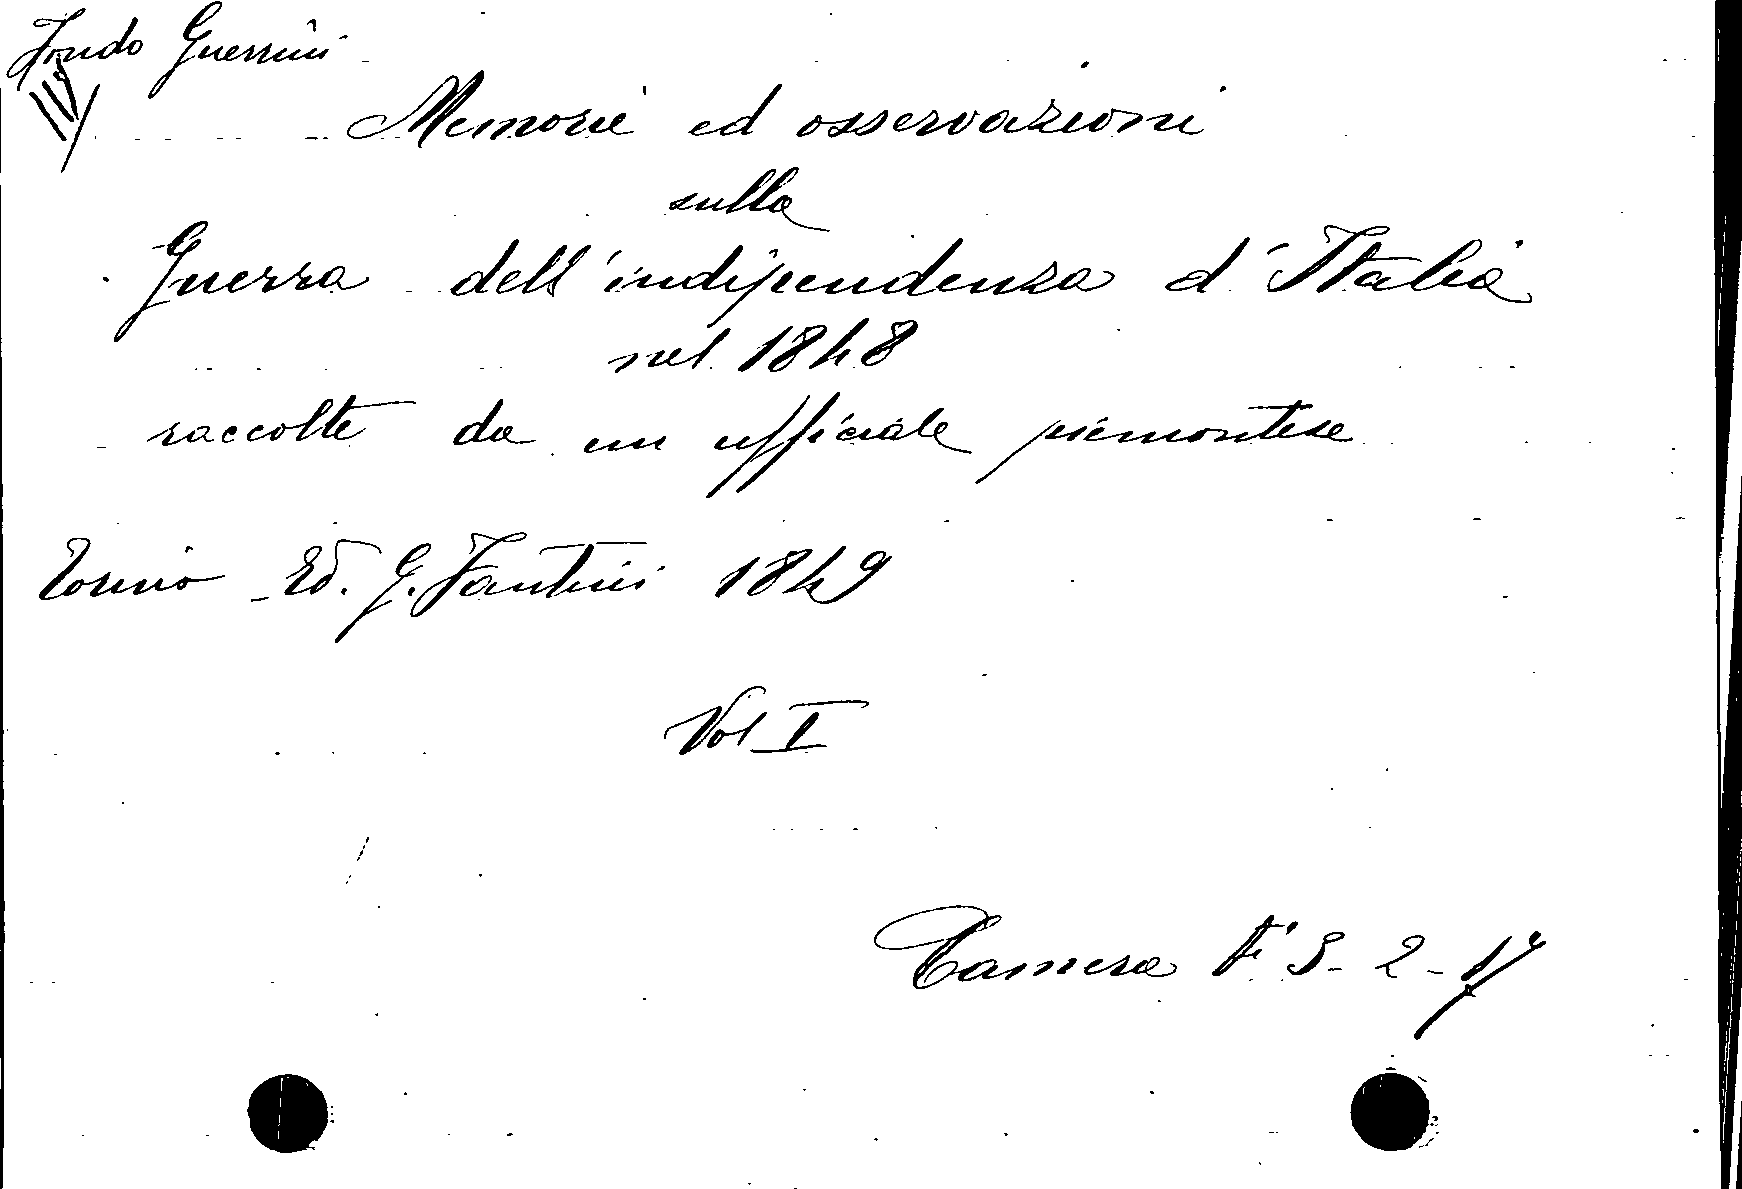 Fondo Guerrini
Memorie ed osservazioni
sulla
Guerra dell'indipendenza d'Italia
nel 1848
raccolte da un ufficiale piemontese
Torino - Ed. G. Fantini 1849
Vol I
Camera F. S - 2 - 17